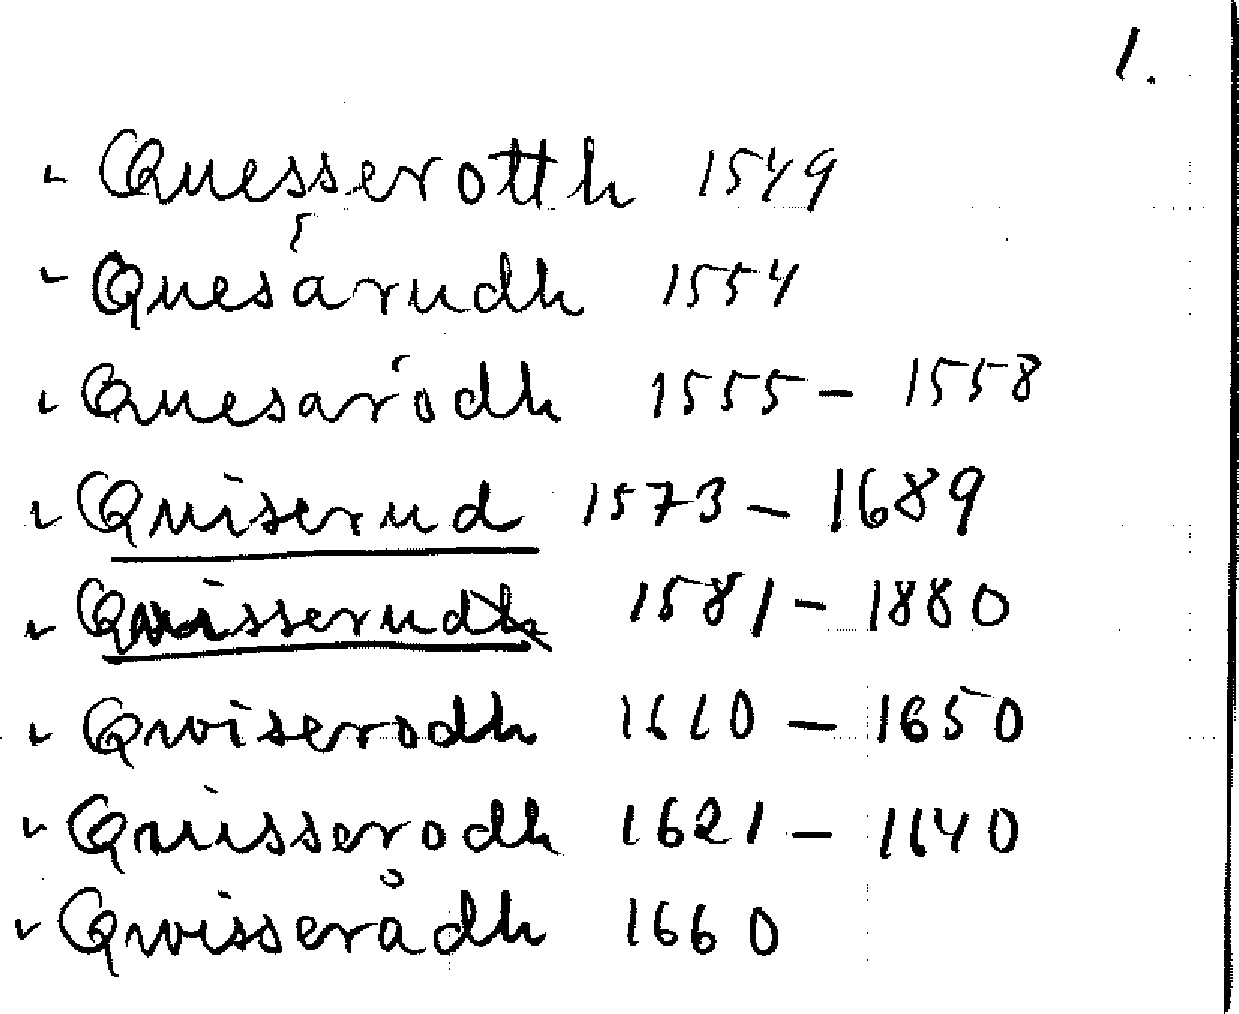 1.
Quesserotth 1549
Quesárudh 1554
Quesaródh 1555 - 1558
Quiserud 1573 - 1689
Quisserudh 1581 - 1880
Qwiserodh 1610 - 1650
Quisserodh 1621 - 1640
Qwisserådh 1660